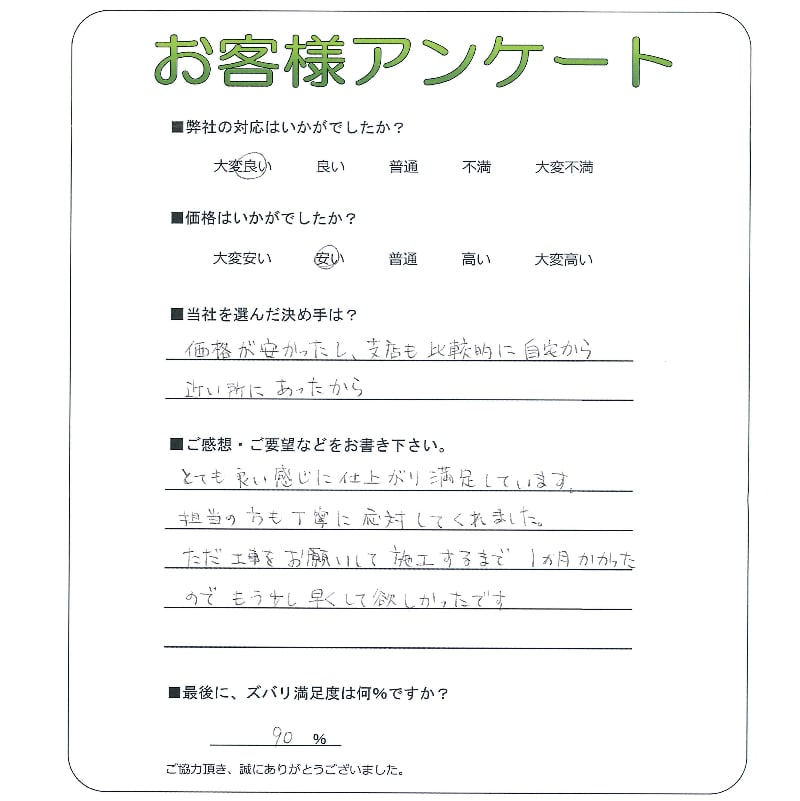 お客様アンケート
■弊社の対応はいかがでしたか？
大変良い 良い 普通 不満 大変不満
■価格はいかがでしたか？
大変安い 安い 普通 高い 大変高い
■当社を選んだ決め手は？
価格が安かったし、支店も比較的に自宅から
近い所にあったから
■ご感想・ご要望などをお書き下さい。
とても良い感じに仕上がり満足しています。
担当の方も丁寧に応対してくれました。
ただ工事をお願いして施工するまで1か月かかった
のでもう少し早くして欲しかったです
■最後に、ズバリ満足度は何%ですか？
90 %
ご協力頂き、誠にありがとうございました。